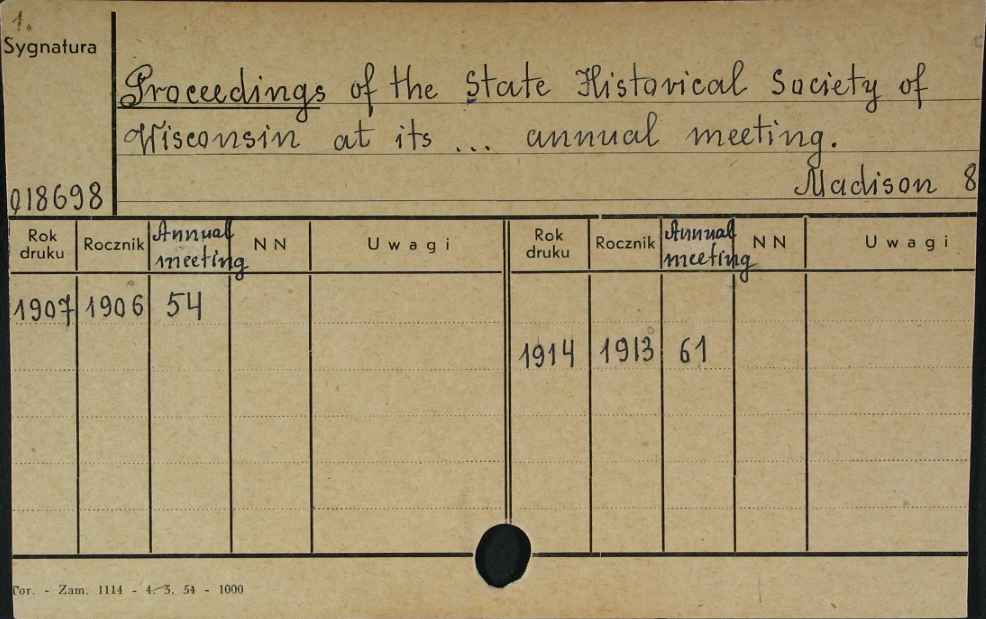 1.
Sygnatura
Proceedings of the State Historical Society of
Wisconsin at its ... annual meeting.
Madison 8
018698
Rok druku Rocznik Annual meeting NN Uwagi Rok druku Rocznik Annual meeting NN Uwagi
1907 1906 54
1914 1913 61
Tor. - Zam. 1114 - 4. 3. 54 - 1000